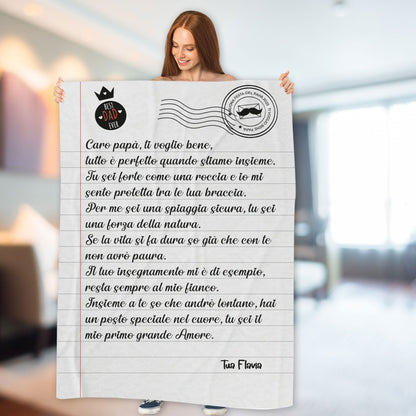 BEST
DAD
EVER
Caro papà, ti voglio bene,
tutto è perfetto quando stiamo insieme.
Tu sei forte come una roccia e io mi
sento protetta tra le tua braccia.
Per me sei una spiaggia sicura, tu sei
una forza della natura.
Se la vita si fa dura so già che con te
non avrò paura.
Il tuo insegnamento mi è di esempio,
resta sempre al mio fianco.
Insieme a te so che andrò lontano, hai
un posto speciale nel cuore, tu sei il
mio primo grande Amore.
Tua Flavia